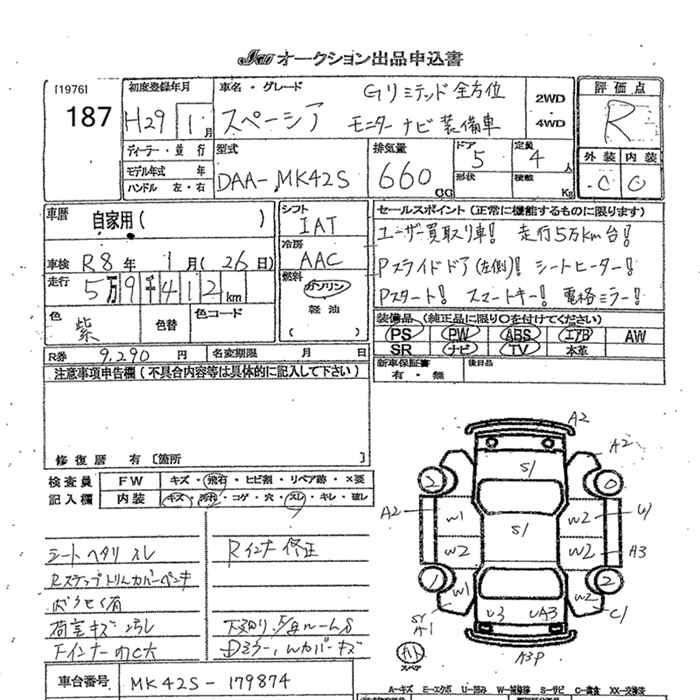 JAA オークション出品申込書
[1976]
187
初度登録年月
H29 1月
車名・グレード
スペーシア
Gリミテッド 全方位
モニターナビ装備車
2WD
4WD
評価点
R
外装 内装
C C
ディーラー・並行
モデル年式 年
ハンドル 左・右
型式
DAA-MK42S
排気量
660 CC
ドア 5
形状
定員 4 人
積載 Kg
車歴
自家用( )
車検 R8年 1月(26日)
走行 5万9千412km
色 紫
色替
色コード
シフト
IAT
冷房
AAC
燃料
ガソリン
軽油
( )
セールスポイント(正常に機能するものに限ります)
ユーザー買取り車! 走行5万km台!
Pスライドドア(左側)! シートヒーター!
Pスタート! スマートキー! 電格ミラー!
装備品(純正品に限り○を付けてください)
PS PW ABS エアB AW
SR ナビ TV 本革
新車保証書
有・無
後日品
R券 9,290円
名変期限 月 日
注意事項申告欄(不具合内容等は具体的に記入して下さい)
修復歴 有 [箇所 ]
検査員
記入欄
FW キズ・飛石・ヒビ割・リペア跡・X要
内装 キズ・汚れ・コゲ・穴・スレ・キレ・破レ
シートヘタリスレ
Rインナー修正
Rステップトリムカバーペンキ
荷室キズ
下廻り
車台番号 MK42S-179874
A2
A2
S1
2
0
A2
W1
W2
U1
S1
W2
W2
A3
1
2
W1
W2
C1
A1
U3
UA3
スペア
A3P
A-キズ E-エクボ U-凹み W-補修跡 S-サビ C-腐食 XX-交換済